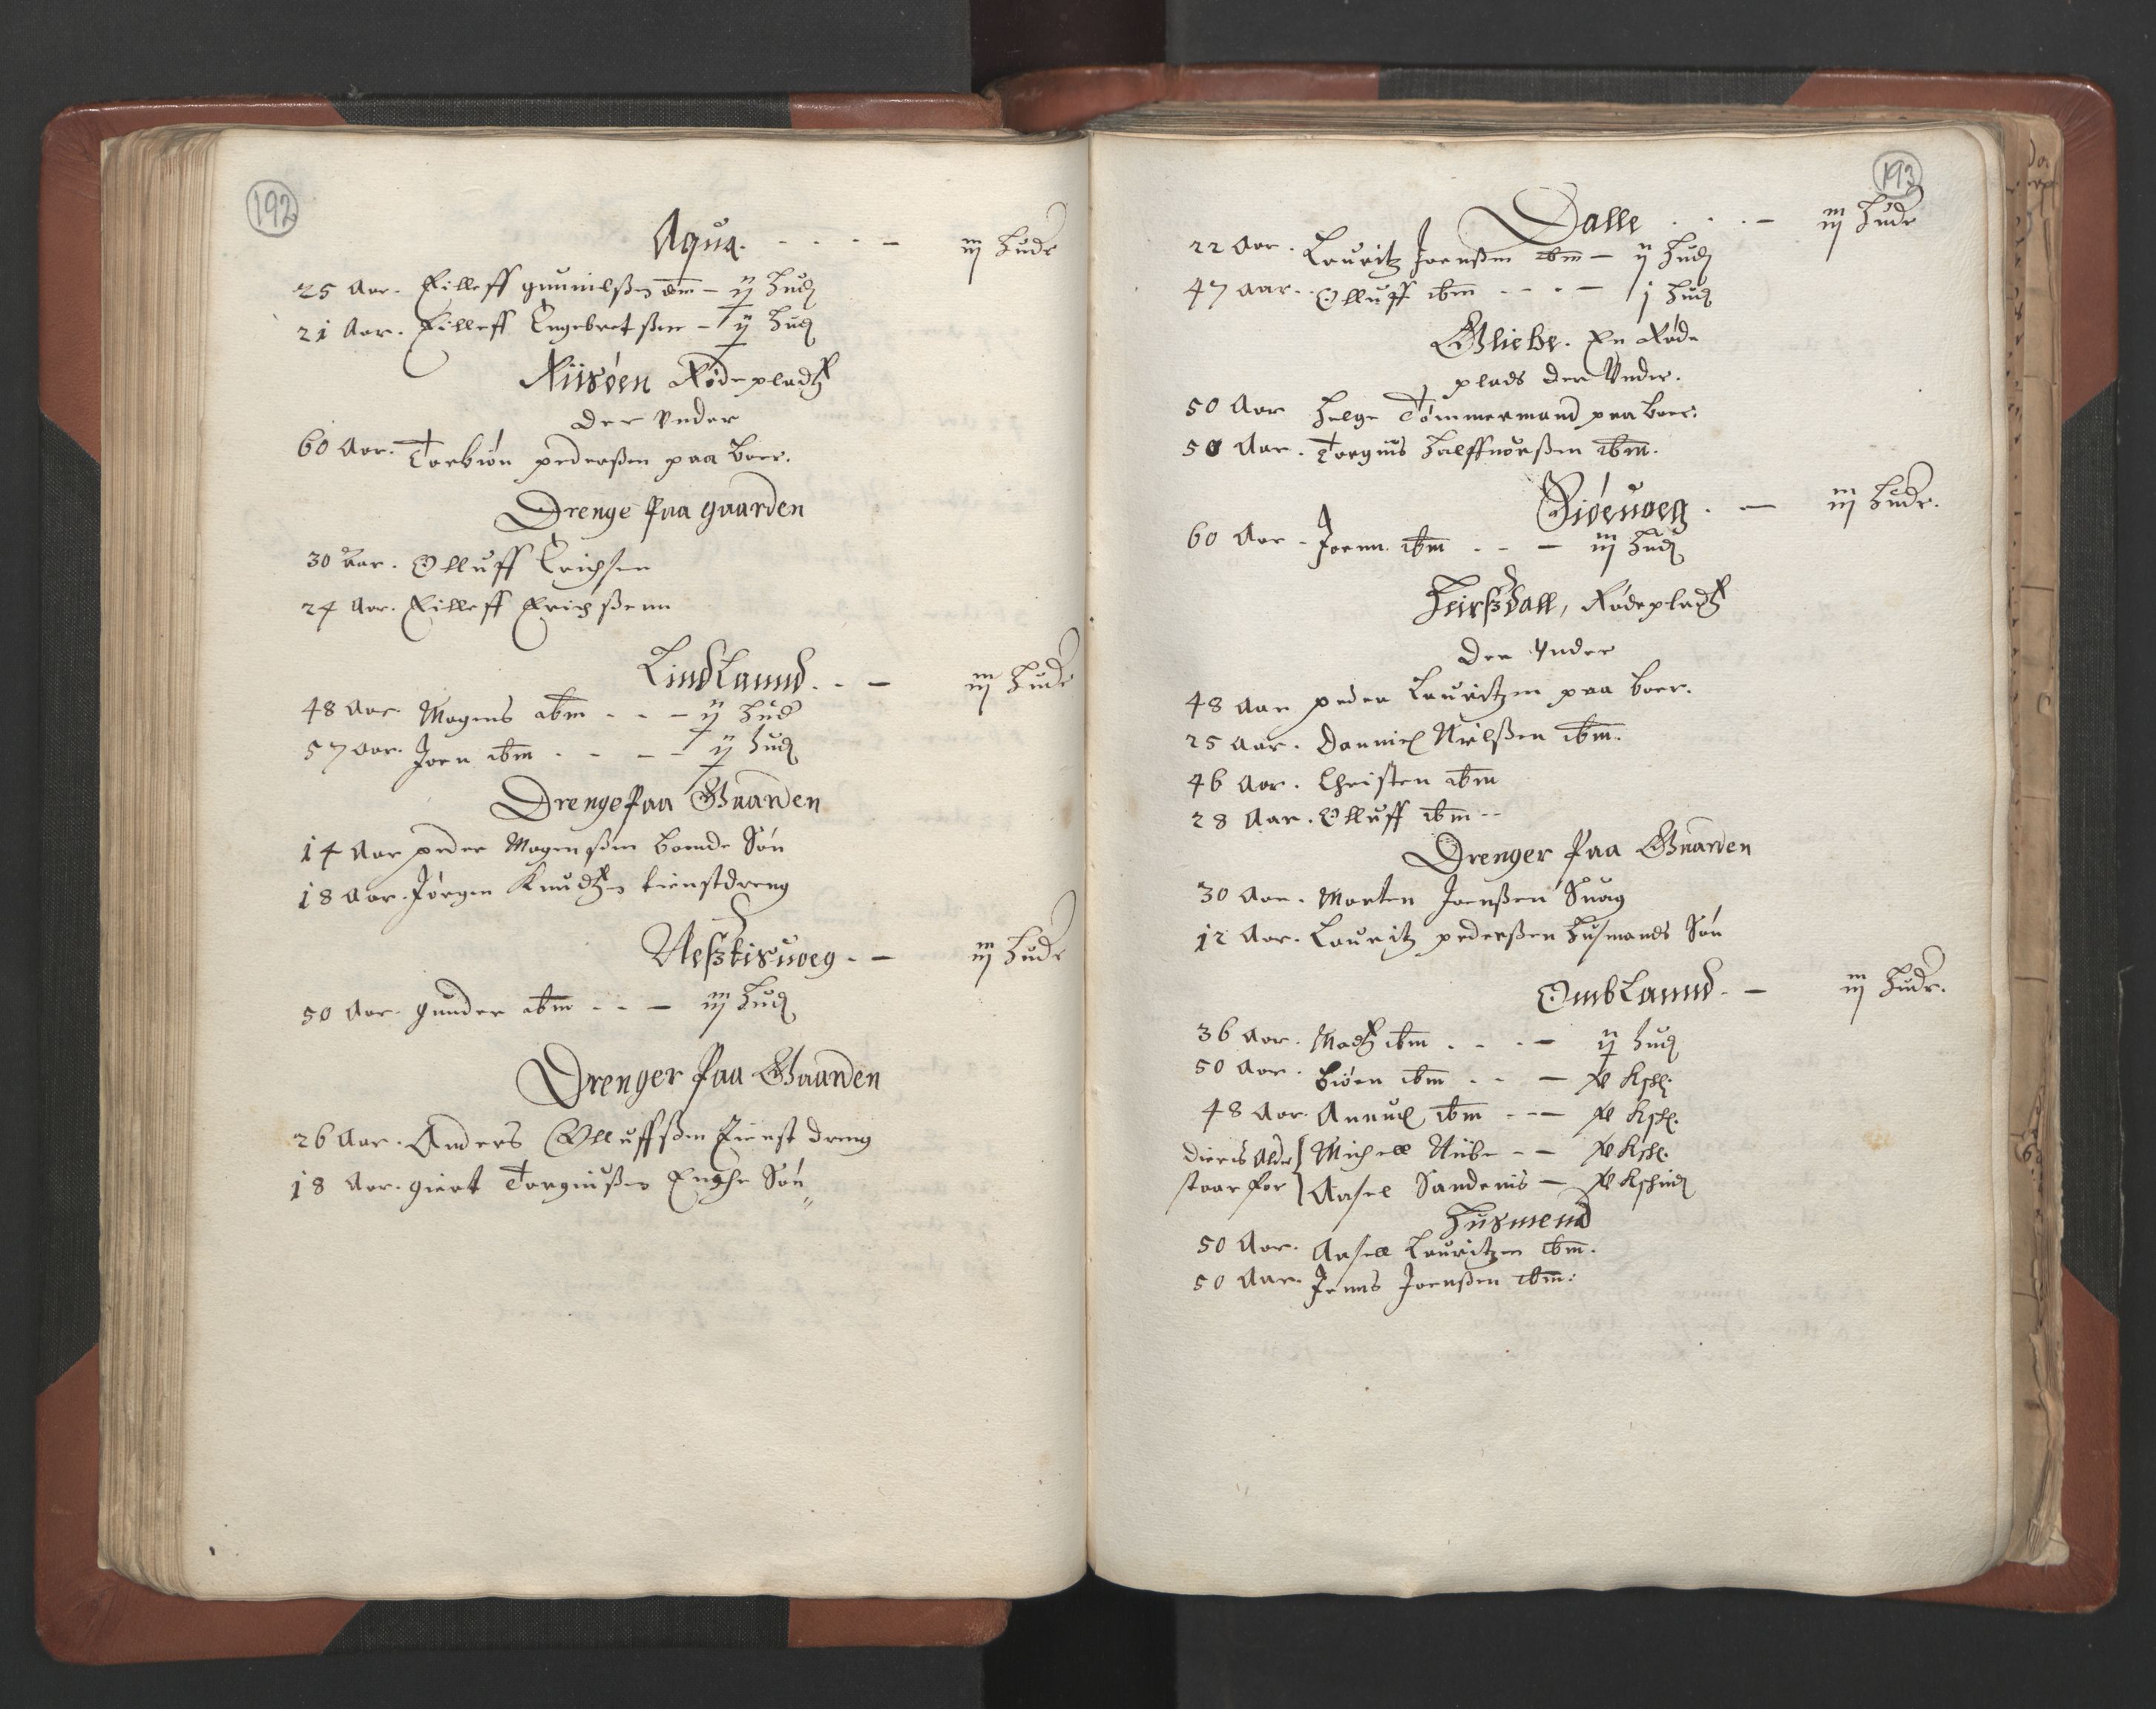 192
Aqua. - - - - iij Hude
25 Aar. Eilleff gunnilßen ibm - ij Hud
21 Aar. Eilleff Engebretßen - ij Hud
Riisøen Rødepladtz
der Vnder
60 Aar. Torbiøn pederßen paa boer.
Drenge Paa gaarden
30 Aar. Olluff Erichsen
24 Aar. Eilleff Erichßenn
Lindlannd. - - iij Hude
48 Aar. Mogens ibm - - - ij Hud
57 Aar. Joen ibm - - - - ij Hud
Drenge Paa Gaarden
14 Aar peder Mogenßen bonde Søn
18 Aar. Jørgen Knudtzen tienstdreng
Neßkisuoeg - - iij Hude
50 Aar. gunder ibm - - - iij Hud
Drenger Paa Gaarden
26 Aar. Anders Olluffßen tienst dreng
18 Aar. giert Torgiußen Enche Søn
193
Dalle . . . - iij Hude
22 Aar. Lauritz Joenßen ibm - ij Hud
47 aar. Olluff ibm - - - - j Hud
Gliebe. En Røde
plads der Vnder.
50 Aar Helge Tømmermand paa boer.
50 Aar. Torgius Halffuorßen ibm.
Giøeuoeg . - iij Hude.
60 Aar - Joenn ibm . . - iij Hud
Heirßdall, Rødepladtz
der Vnder
48 Aar peder Lauritzen paa boer.
25 Aar. Danniel Nielßen ibm.
46 Aar. Christen ibm
28 Aar. Olluff ibm - -
Drenger Paa Gaarden
30 Aar. Morten Joenßen Suog
12 Aar. Lauritz pederßen Husmands Søn
Omblannd. - iij Hude.
36 Aar. Madtz ibm . . . - ij Hud
50 Aar. biøen ibm . . - Kßl.
48 Aar. Annuel ibm - - - Kßl.
dieris Alder Michell - - Kßl.
staar for Aasel Sandenis - Kßind
Husmend
50 Aar. Aasell Lauritzen ibm.
50 Aar. Jenns Joenßen ibm: